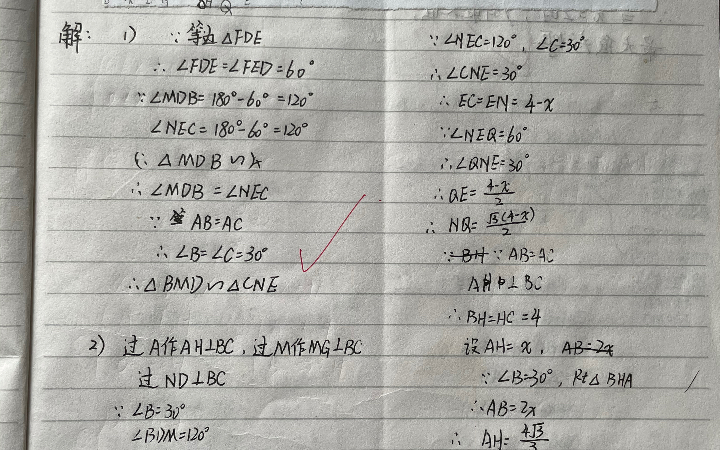 解: 1) ∵ 等边△FDE
∴ ∠FDE=∠FED=60°
∵ ∠MDB=180°-60°=120°
∠NEC=180°-60°=120°
(∵ △MDB∽
∴ ∠MDB=∠NEC
∵ AB=AC
∴ ∠B=∠C=30°
∴ △BMD∽△CNE
2) 过A作AH⊥BC,过M作MG⊥BC
过ND⊥BC
∵ ∠B=30°
∠BDM=120°
∵ ∠NEC=120°, ∠C=30°
∴ ∠CNE=30°
∴ EC=EN=4-x
∵ ∠NEQ=60°
∴ ∠QNE=30°
∴ QE=(4-x)/2
∴ NQ=√3(4-x)/2
∵ BH ∵ AB=AC
AH⊥BC
∴ BH=HC=4
设AH=x, AB=2x
∵ ∠B=30°, Rt△BHA
∴ AB=2x
∴ AH=4√3/3